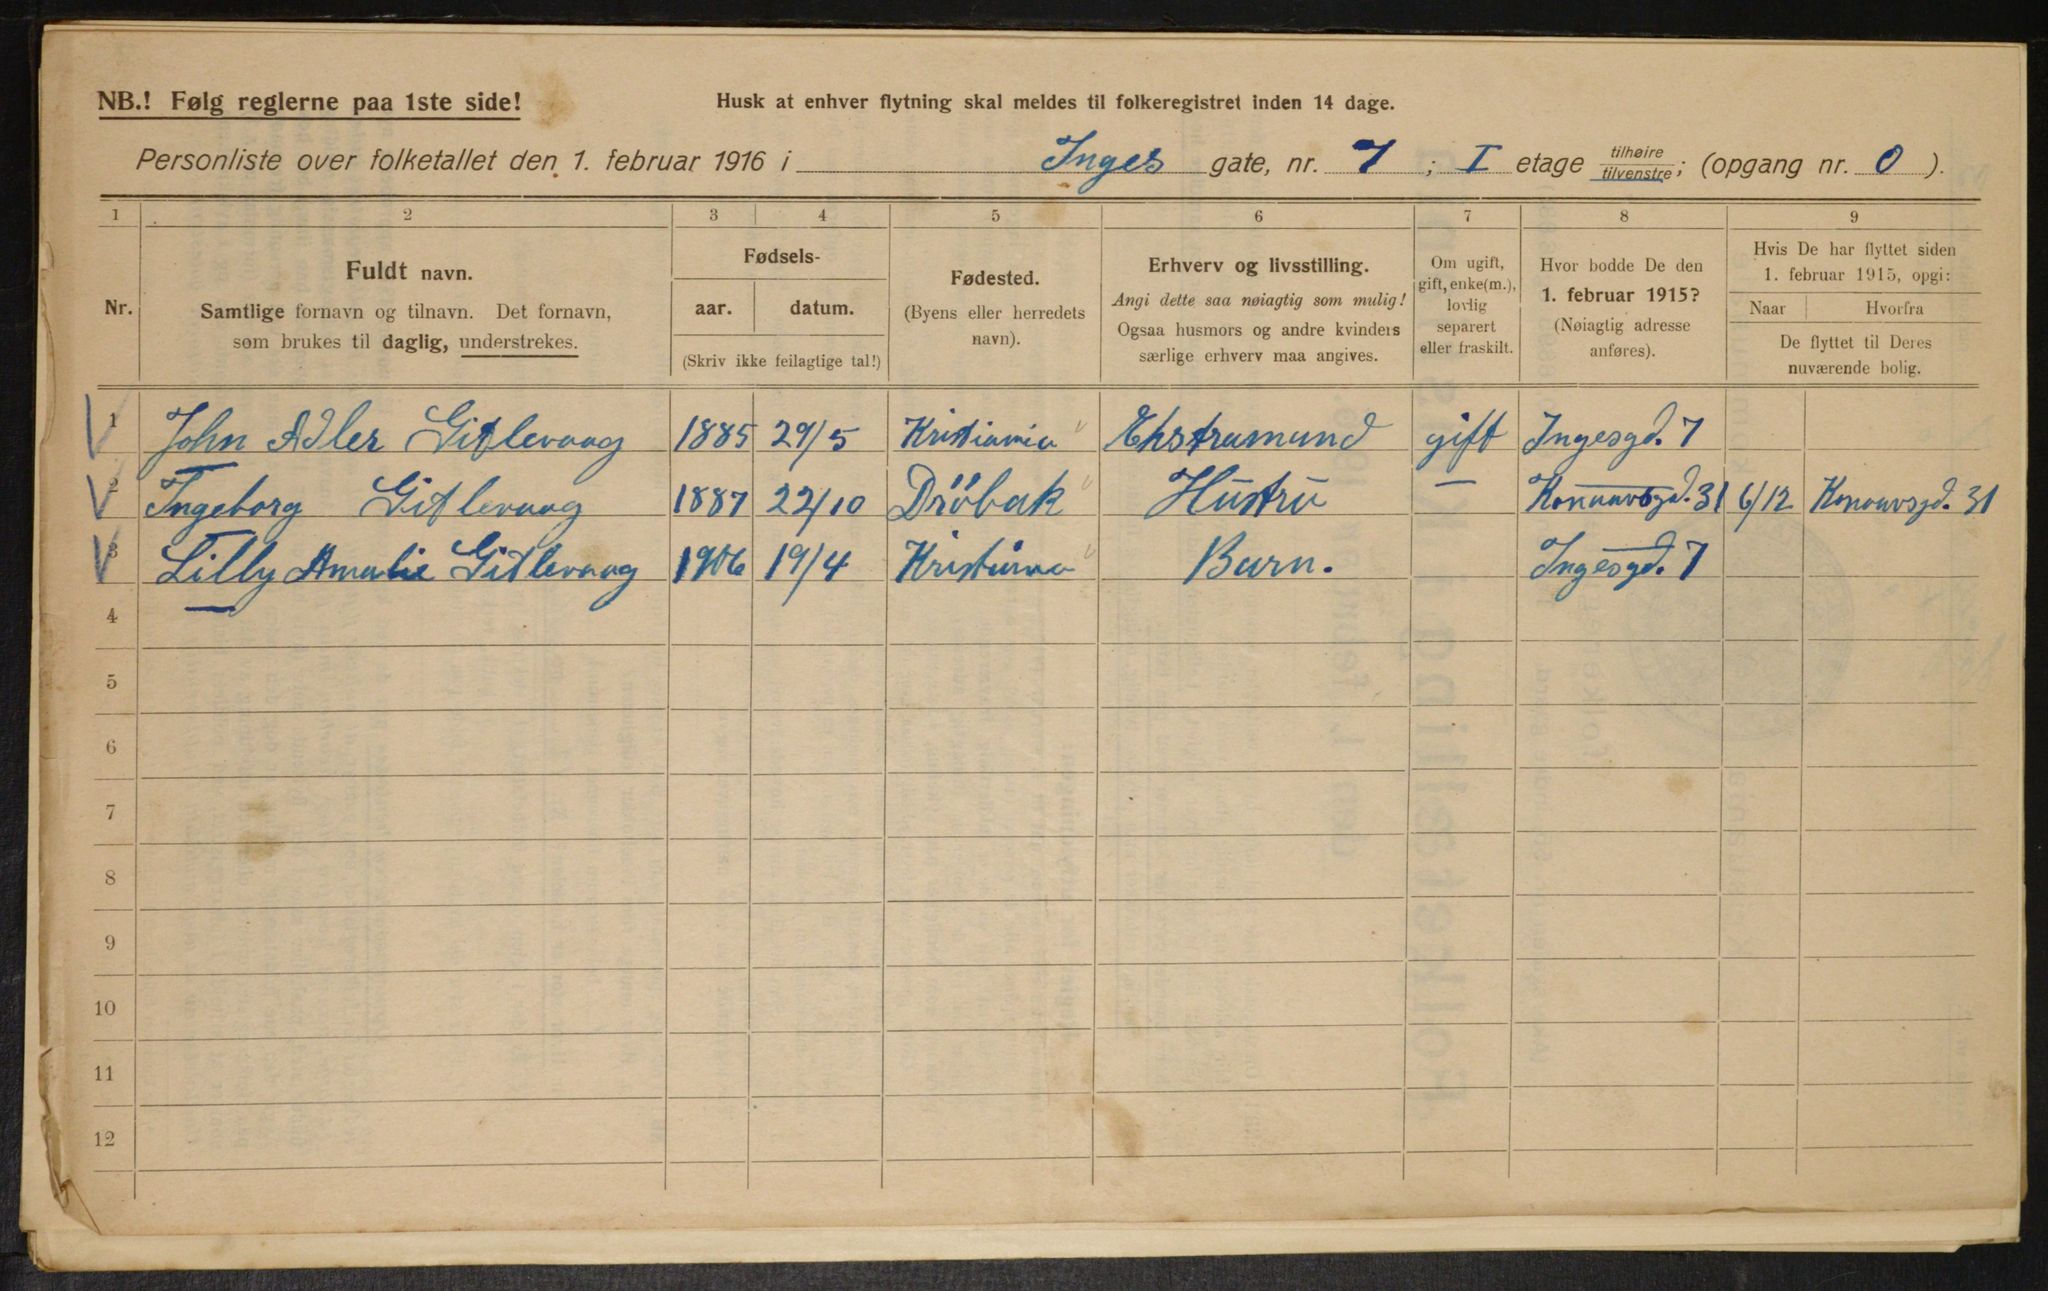 NB.! Følg reglerne paa 1ste side!
Husk at enhver flytning skal meldes til folkeregistret inden 14 dage.
Personliste over folketallet den 1. februar 1916 i Inges gate, nr. 7 ; I etage tilhøire tilvenstre; (opgang nr. 0 ).
1 2 3 4 5 6 7 8 9
Nr.
Fuldt navn.
Samtlige fornavn og tilnavn. Det fornavn,
som brukes til daglig, understrekes.
Fødsels-
aar. datum.
(Skriv ikke feilagtige tal!)
Fødested.
(Byens eller herredets
navn).
Erhverv og livsstilling.
Angi dette saa nøiagtig som mulig!
Ogsaa husmors og andre kvinders
særlige erhverv maa angives.
Om ugift,
gift, enke(m.),
lovlig
separert
eller fraskilt.
Hvor bodde De den
1. februar 1915?
(Nøiagtig adresse
anføres).
Hvis De har flyttet siden
1. februar 1915, opgi:
Naar Hvorfra
De flyttet til Deres
nuværende bolig.
1 John Adler Gitlevaag 1885 29/5 Kristiania Ekstramand gift Ingesgd. 7
2 Ingeborg Gitlevaag 1887 22/10 Dröbak Hustru — 31 6/12 31
3 Lilly Amalie Gitlevaag 1906 19/4 Kristiania Barn. Ingesgd. 7
4
5
6
7
8
9
10
11
12